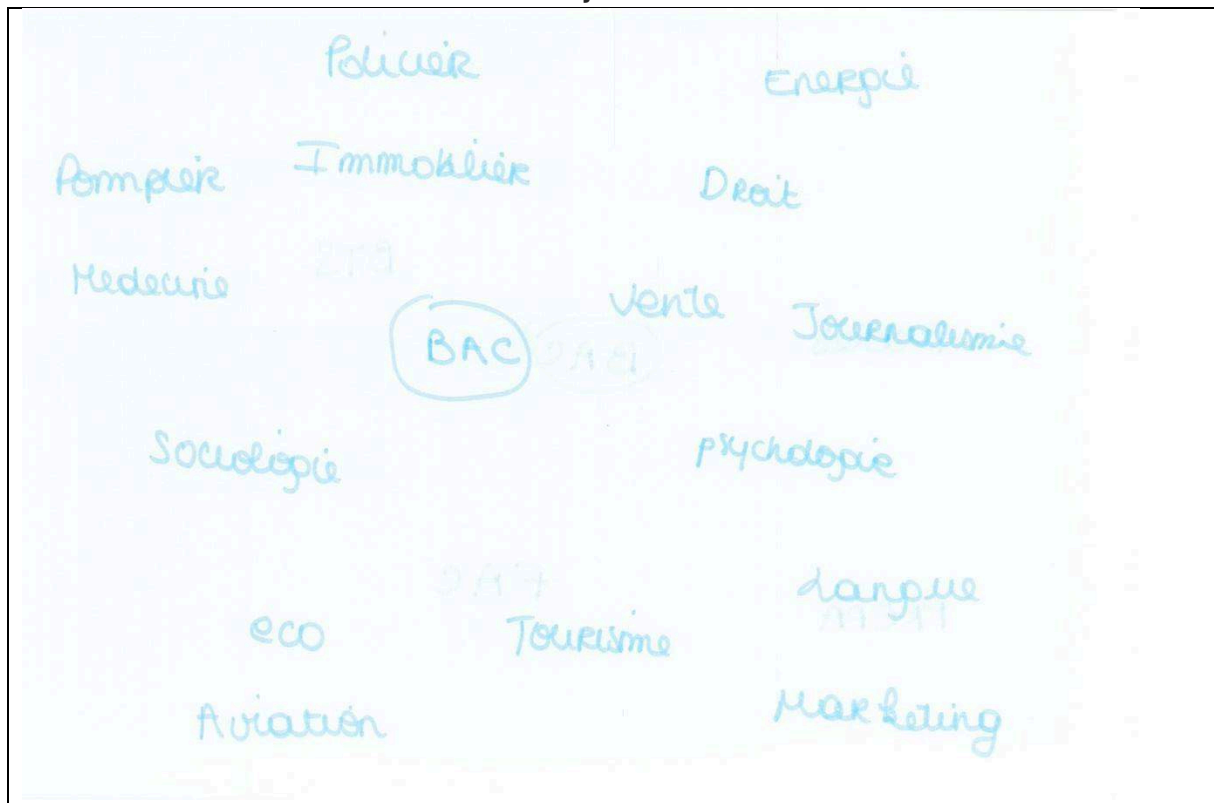 Policier
Energie
Pompier
Immobilier
Droit
Medecine
Vente
Journalisme
BAC
Sociologie
psychologie
Langue
eco
Tourisme
Aviation
Marketing